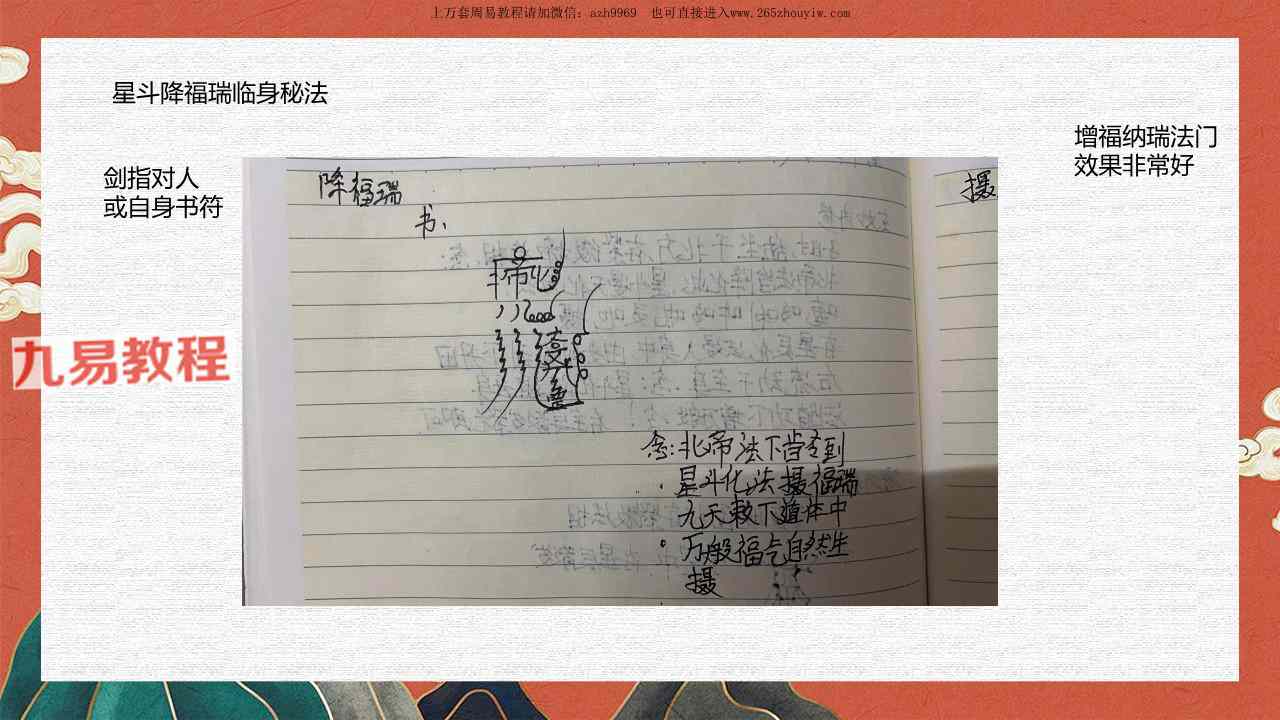 上万套周易教程请加微信：azh9969　也可直接进入www.265zhouyiw.com
星斗降福瑞临身秘法
增福纳瑞法门
效果非常好
剑指对人
或自身书符
九易教程
降福瑞
书、
摄
念：北帝法下当专到
星斗化法摄福瑞
九天敕下道体中
万般福气自然生
摄